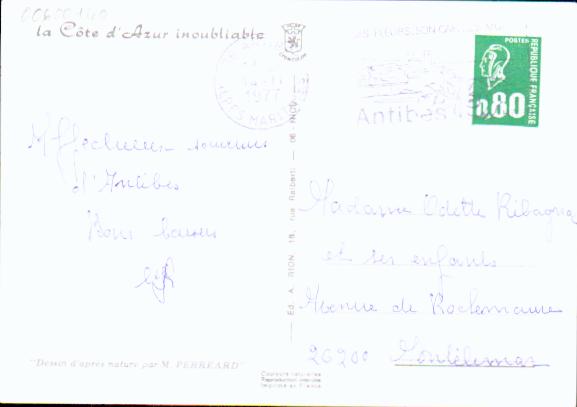 00600140
la Côte d'Azur inoubliable
SES FLEURS, SON
Antibes
1977
ALPES MAR
POSTES
REPUBLIQUE FRANÇAISE
0.80
Affectueux souvenirs
d'Antibes
Bons baisers
Ed. A. RION, 18, rue Raiberti — 06 NICE
Madame Odette Ribagnac
et ses enfants
Avenue de Rochemaure
26200 Montélimar
"Dessin d'après nature par M. PERREARD"
Couleurs naturelles
Reproduction interdite
Imprimé en France